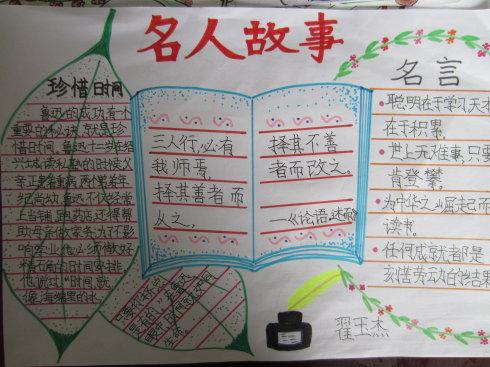 名人故事
珍惜时间
鲁迅的成功,有一个
重要的秘诀,就是珍
惜时间。鲁迅十二岁在绍
兴城读私塾的时候,父
亲正患着重病,两个弟弟年
纪尚幼,鲁迅不仅经常
上当铺,跑药店,还得帮
助母亲做家务,为了不影
响学业,他必须做好
精确的时间安排。
他说过:"时间就
像海绵里的水
三人行,必有
我师焉,
择其善者而
从之,
择其不善
者而改之。
—《论语·述而》
名言
聪明在于学习,天才
在于积累。
世上无难事,只要
肯登攀。
为中华之崛起而
读书。
任何成就都是
刻苦劳动的结果
翟玉杰